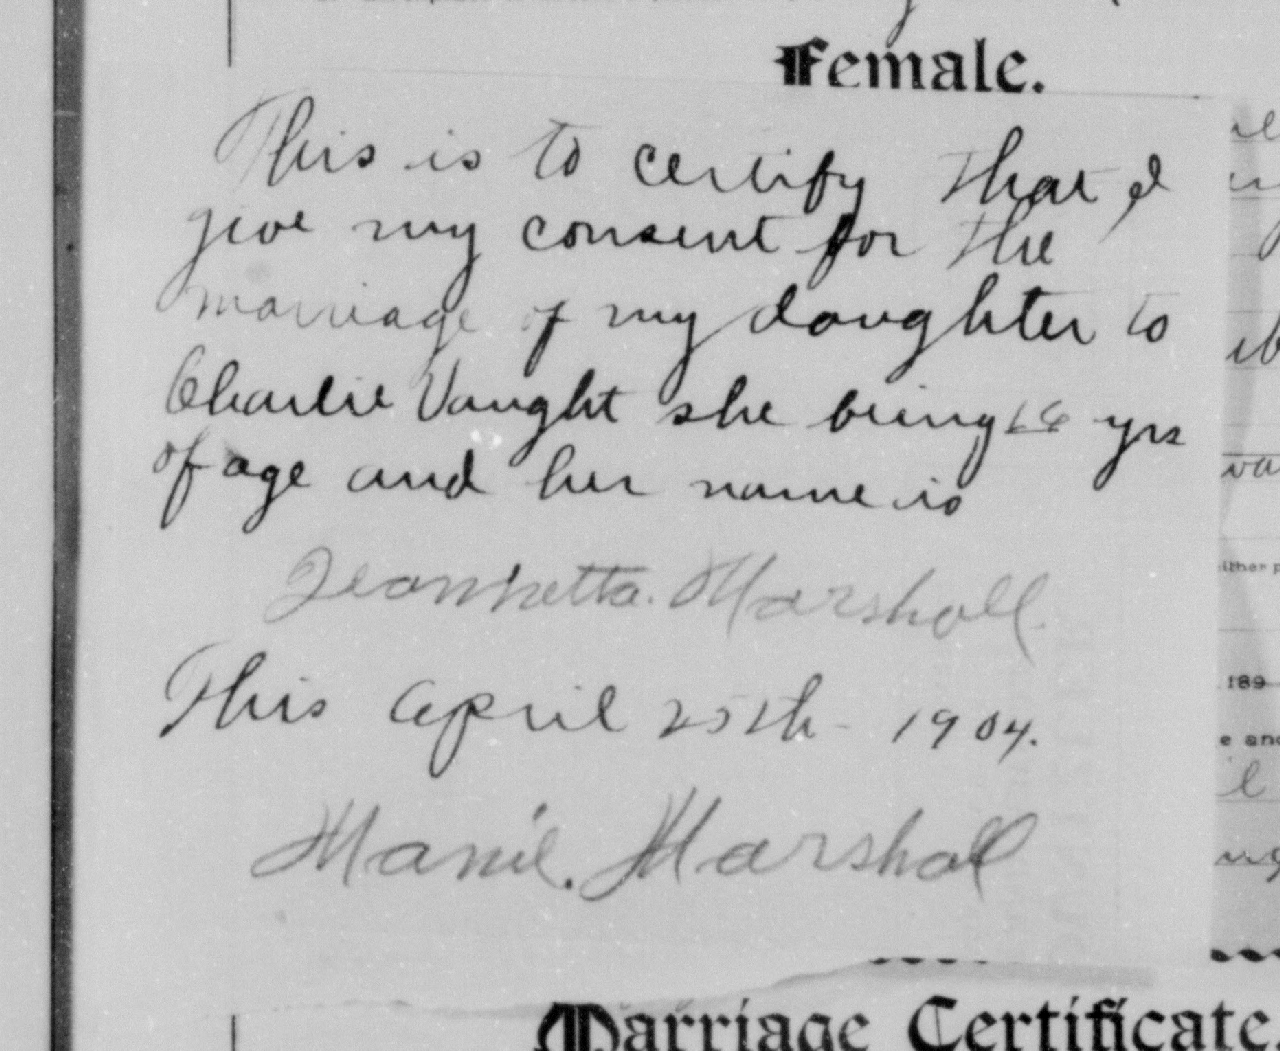 Female.
This is to certify that I
give my consent for the
marriage of my daughter to
Charlie Vaught she being 16 yrs
of age and her name is
Jeannetta. Marshall.
This April 25th - 1904.
Marshal
189
Marriage Certificate.